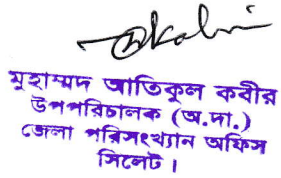 মুহাম্মদ আতিকুল কবীর
উপপরিচালক (অ.দা.)
জেলা পরিসংখ্যান অফিস
সিলেট।